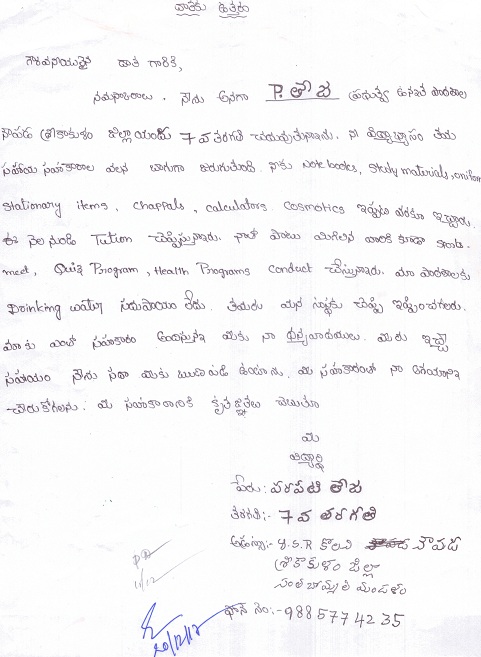 దాతకు ఉత్తరం
గౌరవనీయులైన దాత గారికి,
నమస్కారాలు. నేను అనగా P. తౌజ ప్రభుత్వ ఉన్నత పాఠశాల
నౌపడ శ్రీకాకుళం జిల్లా యందు 7 వ తరగతి చదువుతున్నాను. నా విద్యాభ్యాసం తమ
సహాయ సహకారాల వలన బాగుగా జరుగుతుంది. నాకు Note books, Study materials, uniform
Stationary items, chappals, calculators Cosmotics ఇప్పటి వరకూ ఇచ్చారు.
ఈ నెల నుండి Tution చెప్పిస్తున్నారు. నాతో పాటు మిగిలిన వారికి కూడా Sports
meet, Quiz Program, Health Programs Conduct చేస్తున్నారు. మా పాఠశాలకు
Drinking water సదుపాయం లేదు. తమరు మన సంస్థకు చెప్పి ఇప్పించగలరు.
మాకు ఎంతో సహకారం అందిస్తున్న మీకు నా ధన్యవాదములు. మీరు ఇచ్చే
సహాయం నేను సదా మీకు ఋణపడి ఉంటాను. మీ సహకారంతో నా ఆశయాన్ని
చేరుకోగలను. మీ సహకారానికి కృతజ్ఞతలు తెలుపుతూ
మీ
విద్యార్థి
పేరు: వరపటి తౌజ
తరగతి:- 7 వ తరగతి
అడ్రస్సు:- Y.S.R కాలని నౌపడ
శ్రీకాకుళం జిల్లా
సంతబొమ్మాళి మండలం
ఫోన్ నెం:- 9885774235
11/12
20/12/12